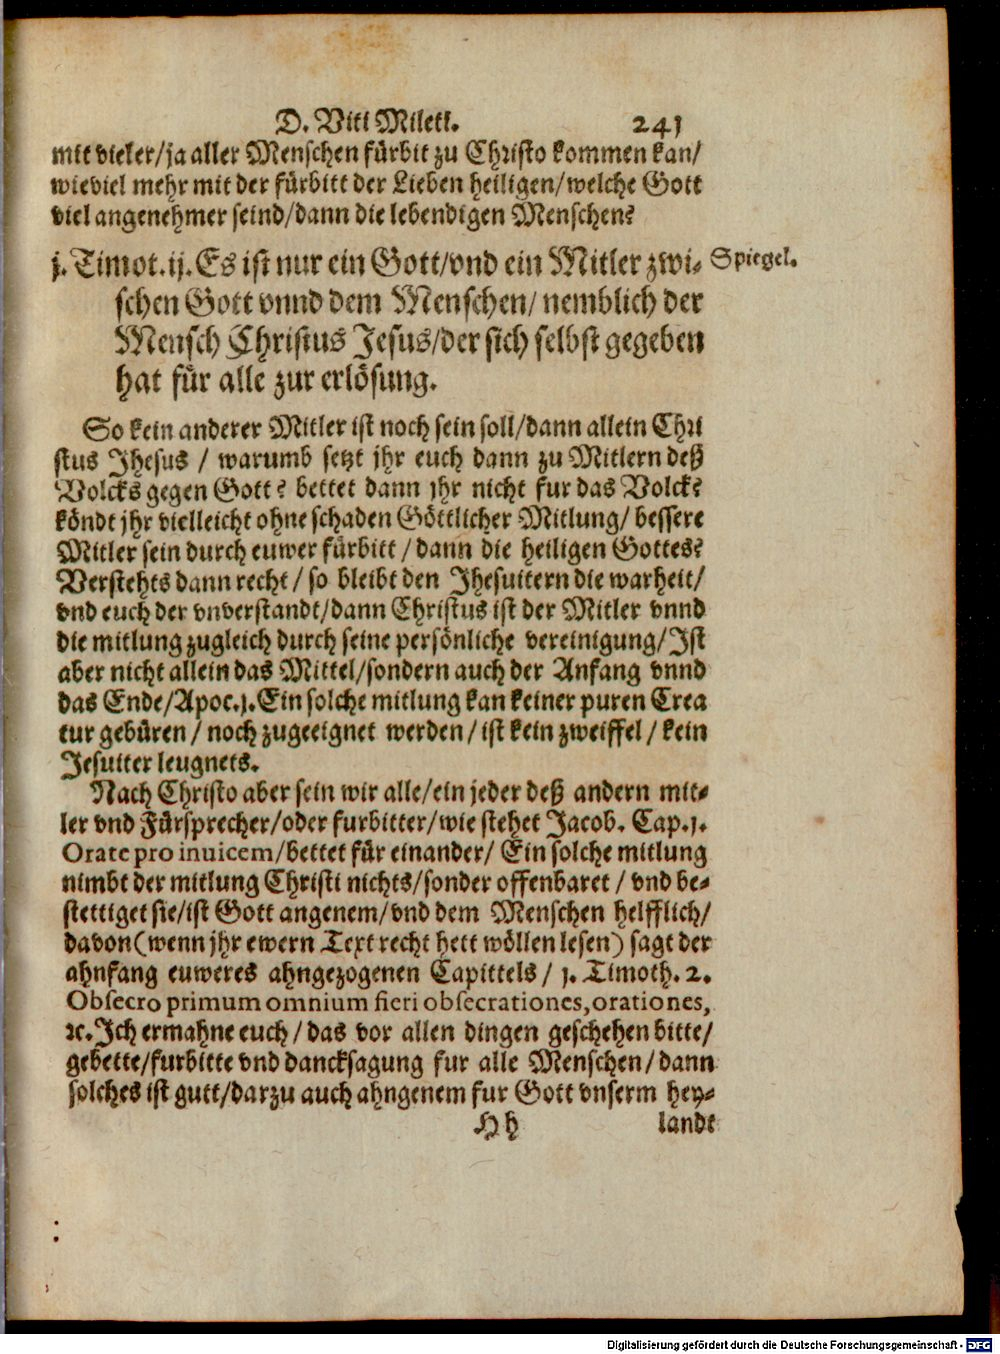 D. Viti Mileti. 241
mit vieler/ja aller Menschen fürbit zu Christo kommen kan/
wieviel mehr mit der fürbitt der Lieben heiligen/welche Gott
viel angenehmer seind/dann die lebendigen Menschen?
j. Timot. ij. Es ist nur ein Gott/vnd ein Mitler zwi- Spiegel.
schen Gott vnnd dem Menschen/ nemblich der
Mensch Christus Jesus/der sich selbst gegeben
hat für alle zur erlösung.
So kein anderer Mitler ist noch sein soll/dann allein Chri
stus Jhesus / warumb setzt jhr euch dann zu Mitlern deß
Volcks gegen Gott? bettet dann jhr nicht fur das Volck?
köndt jhr vielleicht ohne schaden Göttlicher Mitlung/ bessere
Mitler sein durch euwer fürbitt / dann die heiligen Gottes?
Verstehts dann recht / so bleibt den Jhesuitern die warheit/
vnd euch der vnverstandt/dann Christus ist der Mitler vnnd
die mitlung zugleich durch seine persönliche vereinigung/Ist
aber nicht allein das Mittel/sondern auch der Anfang vnnd
das Ende/Apoc.j.Ein solche mitlung kan keiner puren Crea
tur gebüren / noch zugeeignet werden / ist kein zweiffel / kein
Jesuiter leugnets.
Nach Christo aber sein wir alle/ein jeder deß andern mit-
ler vnd Fürsprecher/oder furbitter/wie stehet Jacob. Cap.j.
Orate pro inuicem/bettet für einander/ Ein solche mitlung
nimbt der mitlung Christi nichts/sonder offenbaret / vnd be-
stettiget sie/ist Gott angenem/vnd dem Menschen helfflich/
davon(wenn jhr ewern Text recht hett wöllen lesen) sagt der
ahnfang euweres ahngezogenen Capittels / j. Timoth. 2.
Obsecro primum omnium fieri obsecrationes, orationes,
ꝛc. Ich ermahne euch / das vor allen dingen geschehen bitte/
gebette/furbitte vnd dancksagung fur alle Menschen / dann
solches ist gutt/darzu auch ahngenem fur Gott vnserm hey-
Hh landt
Digitalisierung gefördert durch die Deutsche Forschungsgemeinschaft - DFG